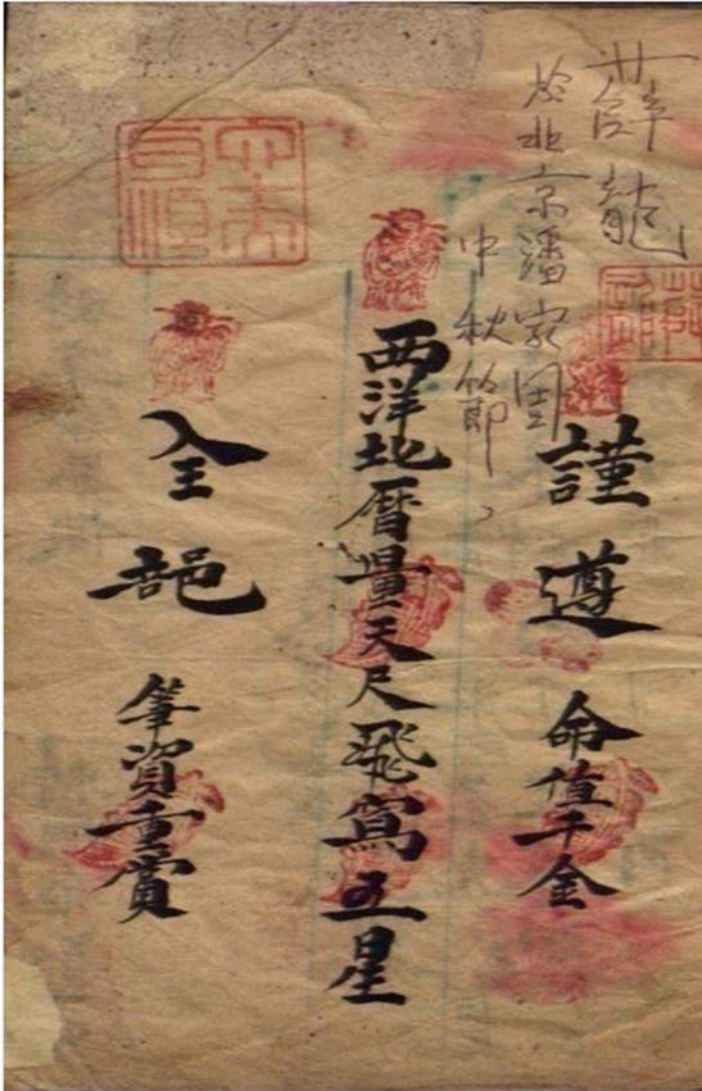 薛龍
於北京潘家園
中秋節
謹遵 命值千金
西洋地曆量天尺飛寫五星
全部 筆資重賞